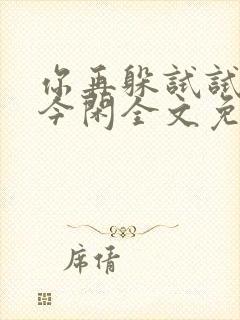 你再躲试试
今闲全文免
席倩